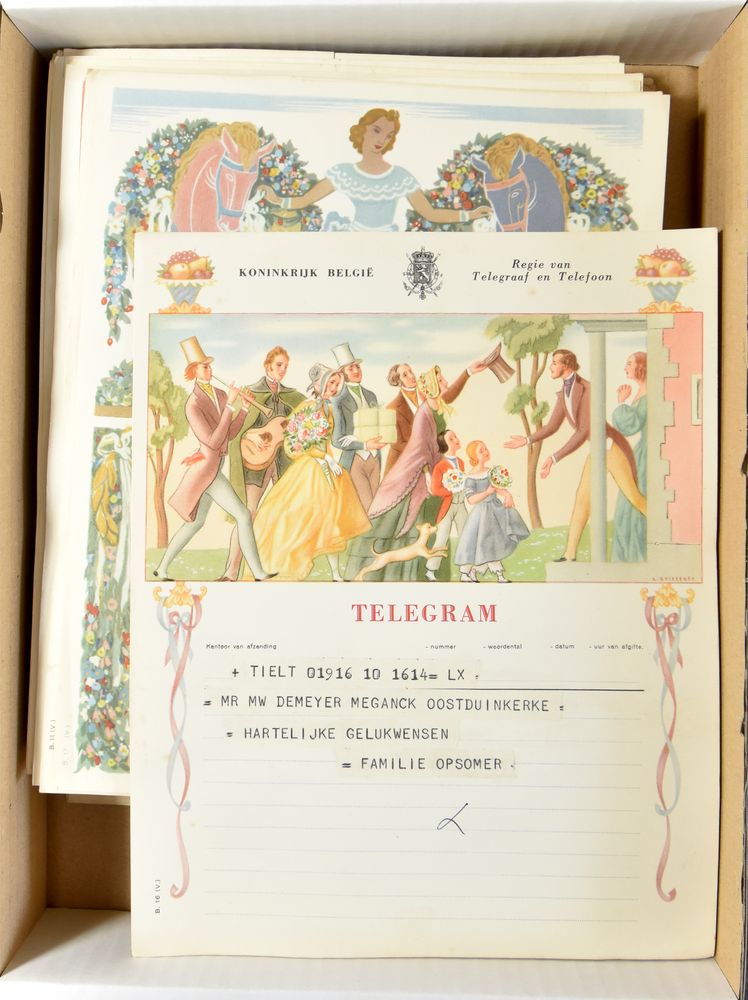 KONINKRIJK BELGIË
Regie van
Telegraaf en Telefoon
TELEGRAM
Kantoor van afzending - nummer - woordental - datum - uur van afgifte.
+ TIELT 01916 10 1614= LX .
= MR MW DEMEYER MEGANCK OOSTDUINKERKE =
= HARTELIJKE GELUKWENSEN
= FAMILIE OPSOMER .
B. 16 (V.)
B. 11 (V.)
B. 17 (V.)